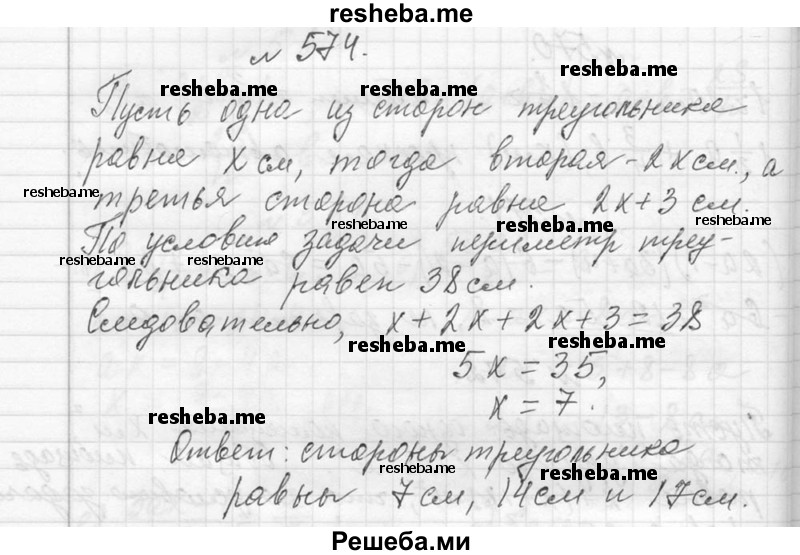 resheba.me
№ 574.
resheba.me
resheba.me resheba.me
Пусть одна из сторон треугольника
равна x см, тогда вторая - 2x см., а
resheba.me
третья сторона равна 2x+3 см.
resheba.me resheba.me resheba.me
По условию задачи периметр треу-
resheba.me resheba.me
гольника равен 38 см.
Следовательно, x+2x+2x+3=38
resheba.me resheba.me
5x=35,
x=7.
resheba.me
Ответ: стороны треугольника
resheba.me resheba.me
равны 7см, 14см и 17см.
Решеба.ми